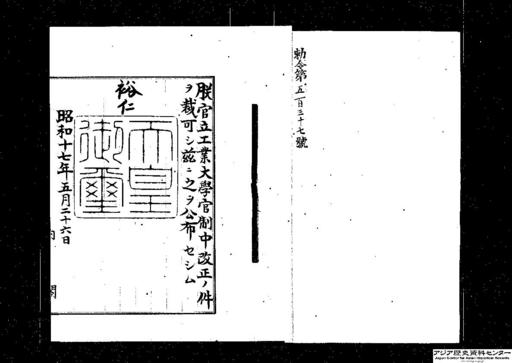 勅令第五百三十七號
朕官立工業大學官制中改正ノ件
ヲ裁可シ茲ニ之ヲ公布セシム
裕仁
天皇
御璽
昭和十七年五月二十六日
内閣
アジア歴史資料センター
Japan Center for Asian Historical Records